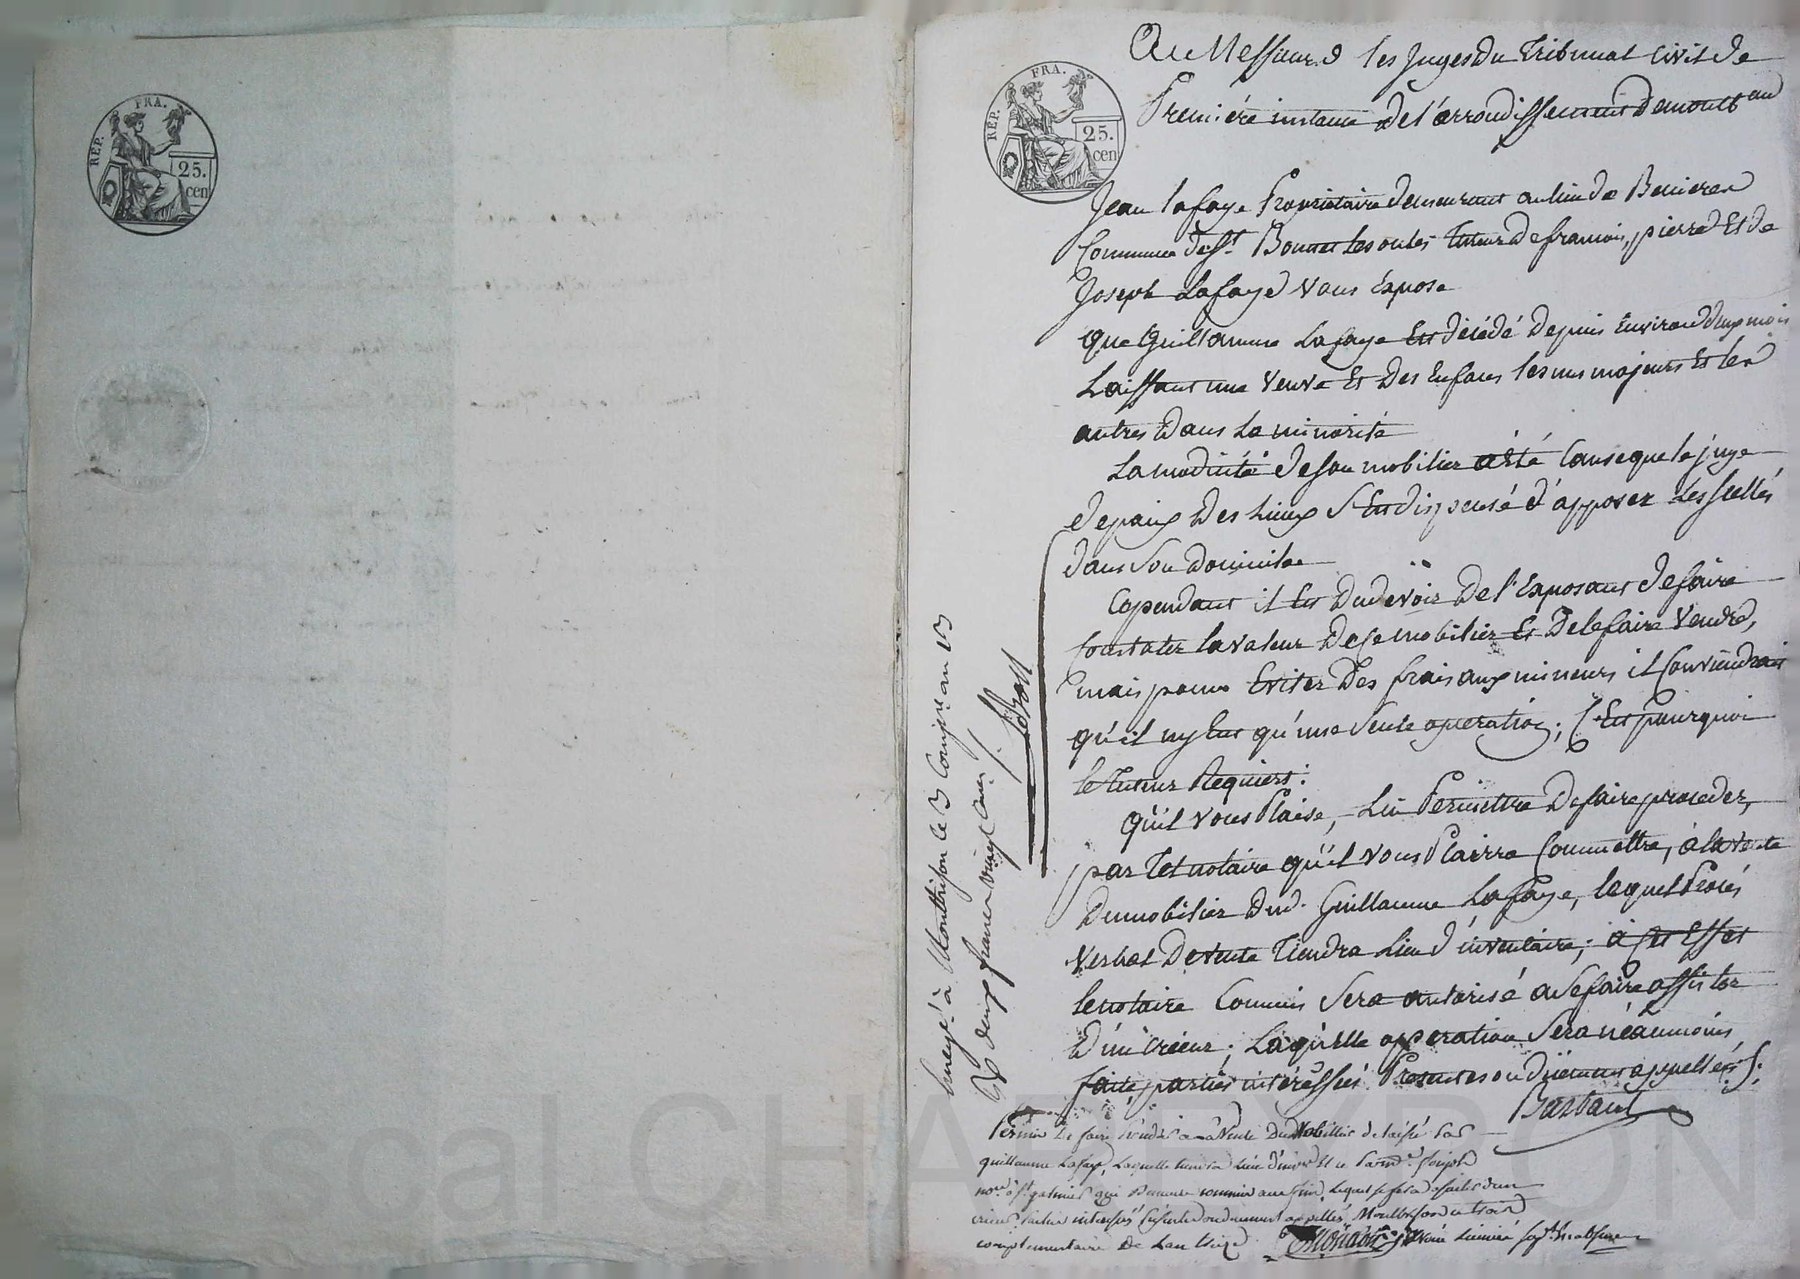 REP. FRA.
25.
cen
REP. FRA.
25.
cen
A Messieurs les Juges du Tribunal Civil de
Première instance de l'arrondissement de
Jean lafaye Propriétaire demeurant au lieu de
Commune de St. Bonnet les oules tuteur de francois, pierre Et de
Joseph Lafaye Vous Expose
que Guillaume Lafaye Est décédé depuis Environ deux mois
Laissant une Veuve Et des Enfans les uns majeurs Et les
autres dans La minorité
La modicité de son mobilier a été Cause que le juge
de paix des Lieux s'Est dispensé d'apposer Les scellés
dans son domicile
Cependant il Est du devoir de l'Exposant de faire
Constater la valeur de ce mobilier Et de le faire Vendre,
mais pour Eviter des frais aux mineurs il Conviendrait
qu'il n'y Eut qu'une seule operation; C'Est pourquoi
le Tuteur Requiert:
qu'il vous Plaise, Lui Permettre de faire proceder,
par Tel notaire qu'il vous Plairra Commettre, à la Vente
du mobilier dud. Guillaume Lafaye, laquel Procès
Verbal de vente Tiendra Lieu d'inventaire; à cet Effet
le notaire Commis sera autorisé a se faire assister
d'un crieur; Laquelle operation sera néanmoins
faite, parties intéressés Presentes ou duement appellées
Permis de faire Procéder a la Vente du Mobillier delaissé par
guillaume Lafaye, Laquelle tiendra Lieu d'inventaire par
nore. à St. galmier que Commis a cette fin, lequel se fera assister d'un
crieur parties interessés presentes ou duement appellés Montbrison
complementaire de Lan treize
Enregé. à Montbrison le
deux francs vingt
CHA ON